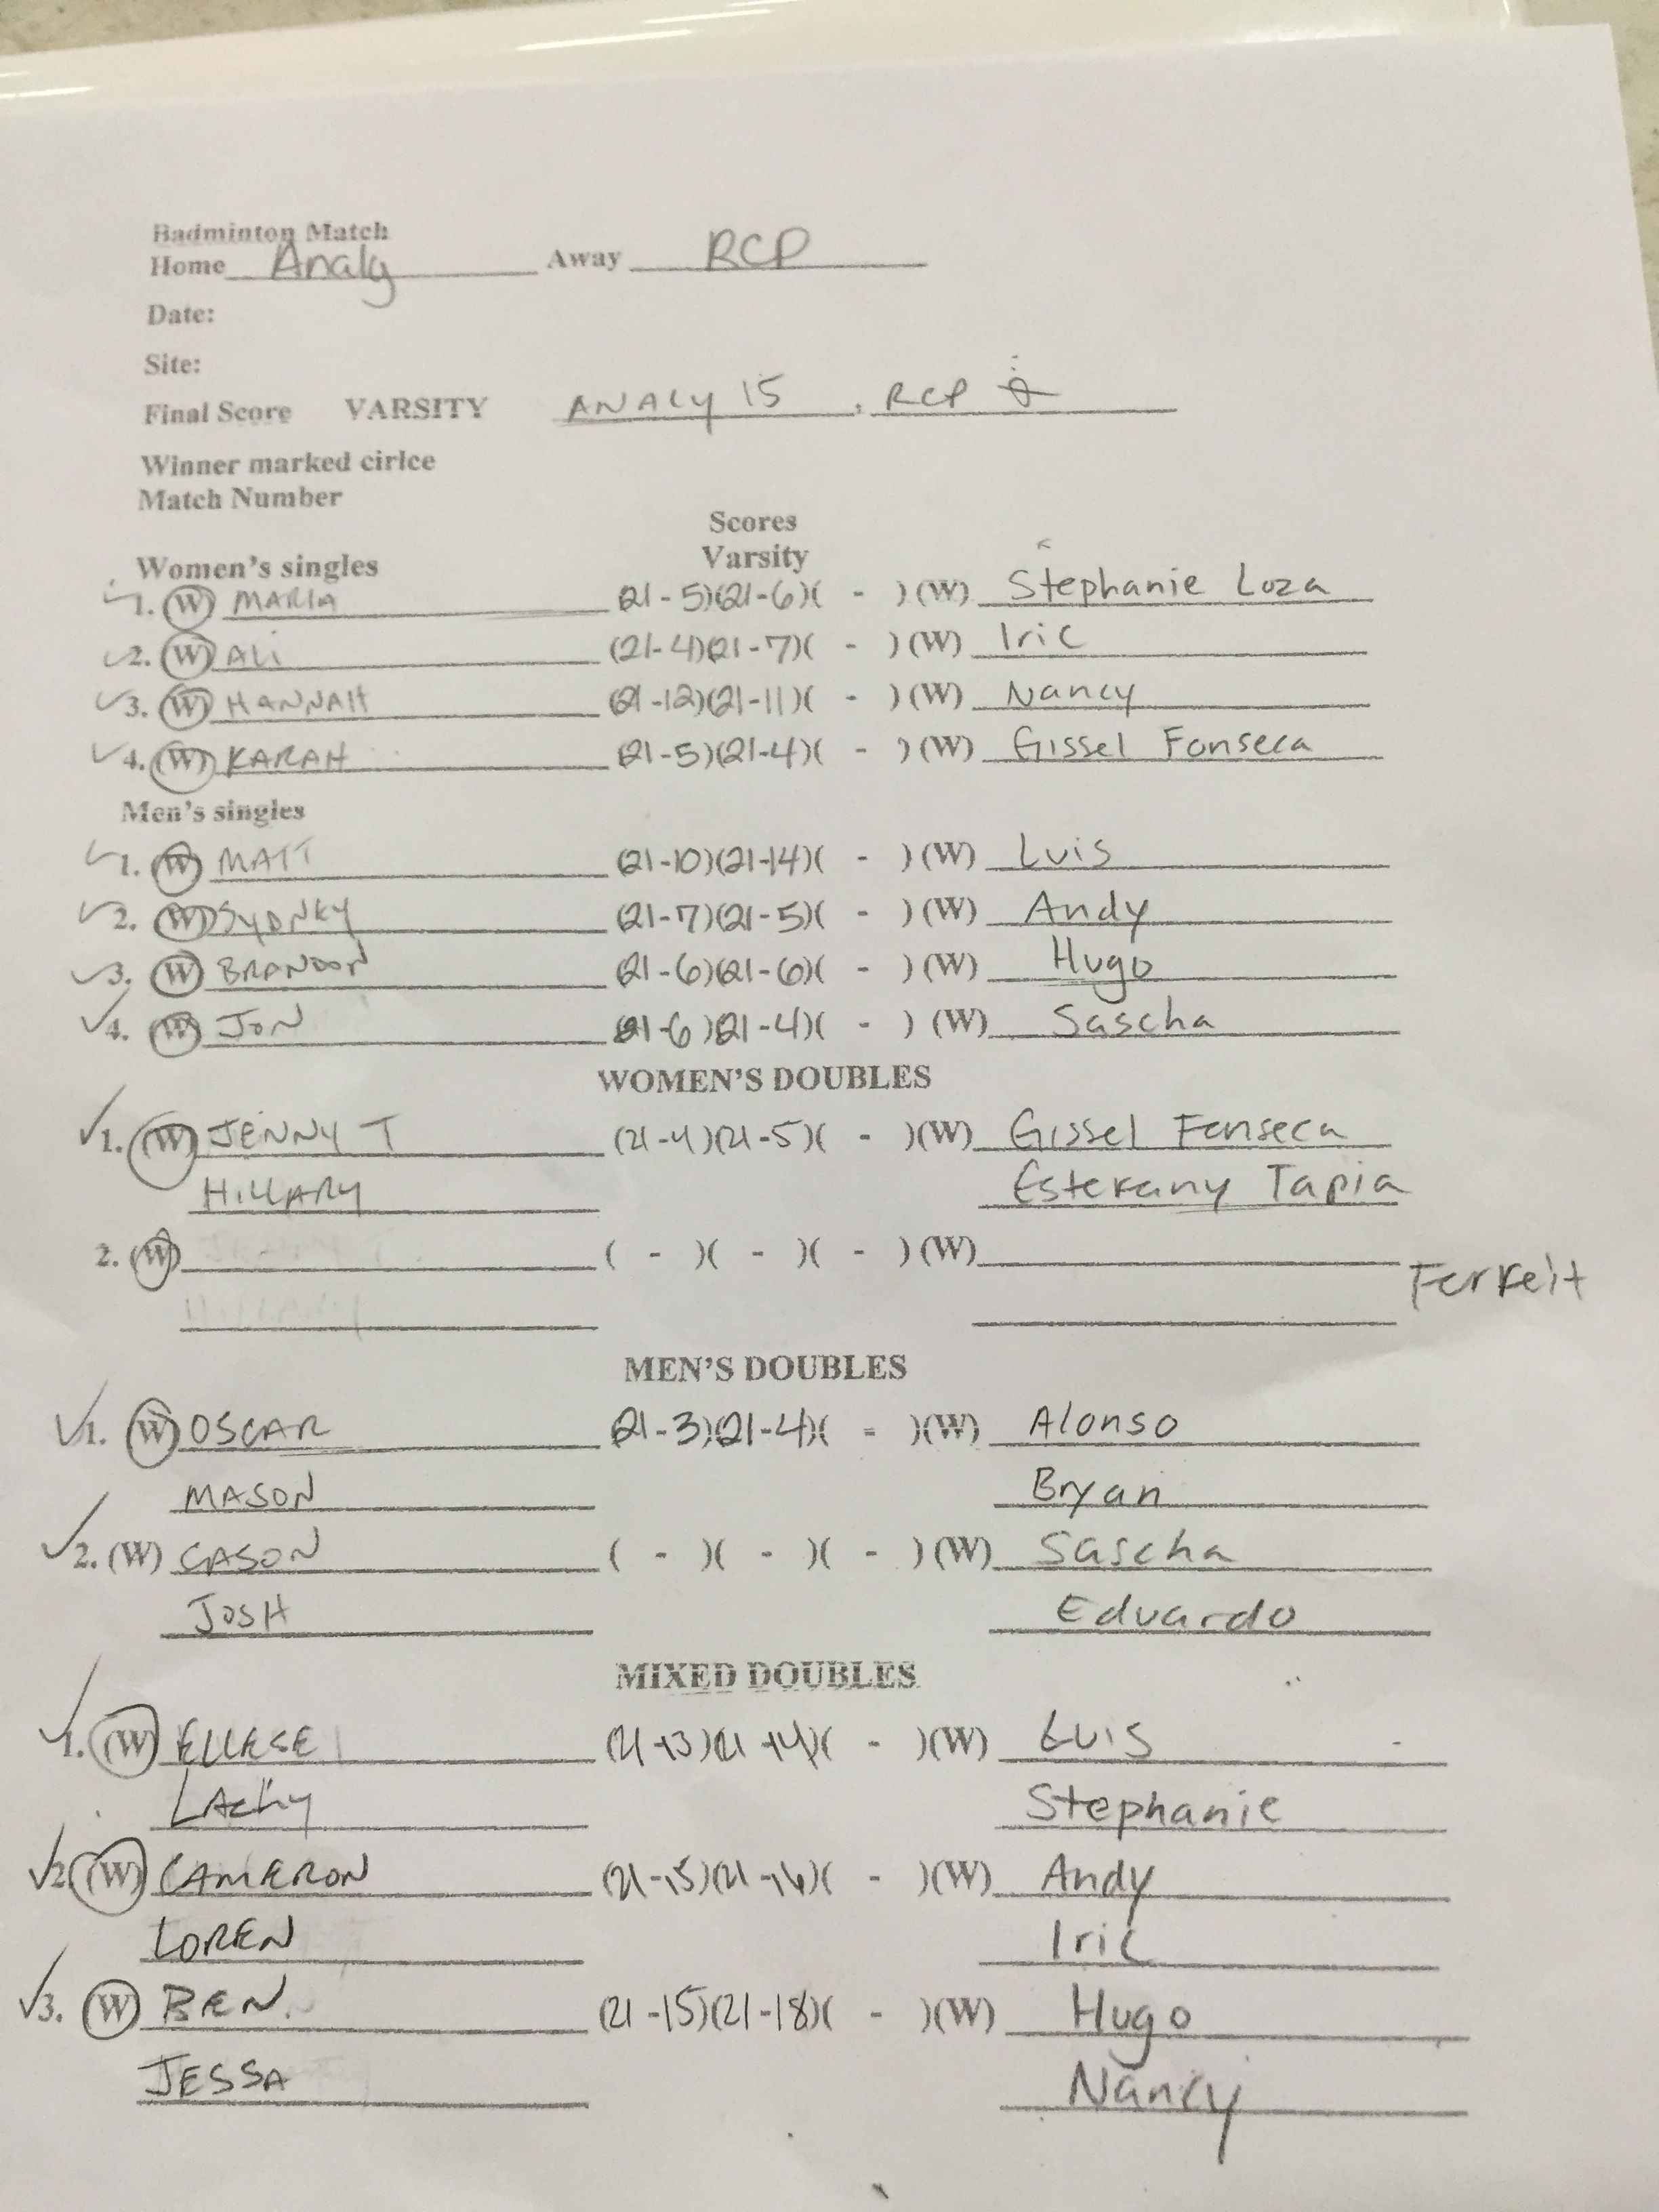 Badminton Match
Home Analy Away RCP
Date:
Site:
Final Score VARSITY ANALY 15, RCP
Winner marked cirlce
Match Number
Scores
Women's singles Varsity
1. (W) MARIA (21-5)(21-6)( - )(W) Stephanie Loza
2. (W) ALI (21-4)(21-7)( - )(W) Iric
3. (W) HANNAH (21-12)(21-11)( - )(W) Nancy
4. (W) KARAH (21-5)(21-4)( - )(W) Gissel Fonseca
Men's singles
1. (W) MATT (21-10)(21-14)( - )(W) Luis
2. (W) SYDNEY (21-7)(21-5)( - )(W) Andy
3. (W) BRANDON (21-6)(21-6)( - )(W) Hugo
4. (W) JON (21-6)(21-4)( - )(W) Sascha
WOMEN'S DOUBLES
1. (W) JENNY T (21-4)(21-5)( - )(W) Gissel Fonseca
HILLARY Estefany Tapia
2. (W) ( - )( - )( - )(W)
Forfeit
MEN'S DOUBLES
1. (W) OSCAR (21-3)(21-4)( - )(W) Alonso
MASON Bryan
2. (W) CASON ( - )( - )( - )(W) Sascha
JOSH Eduardo
MIXED DOUBLES
1. (W) ELLESE (21-13)(21-14)( - )(W) Luis
Stephanie
2. (W) CAMERON (21-15)(21-16)( - )(W) Andy
LOREN Iric
3. (W) BEN (21-15)(21-18)( - )(W) Hugo
JESSA Nancy